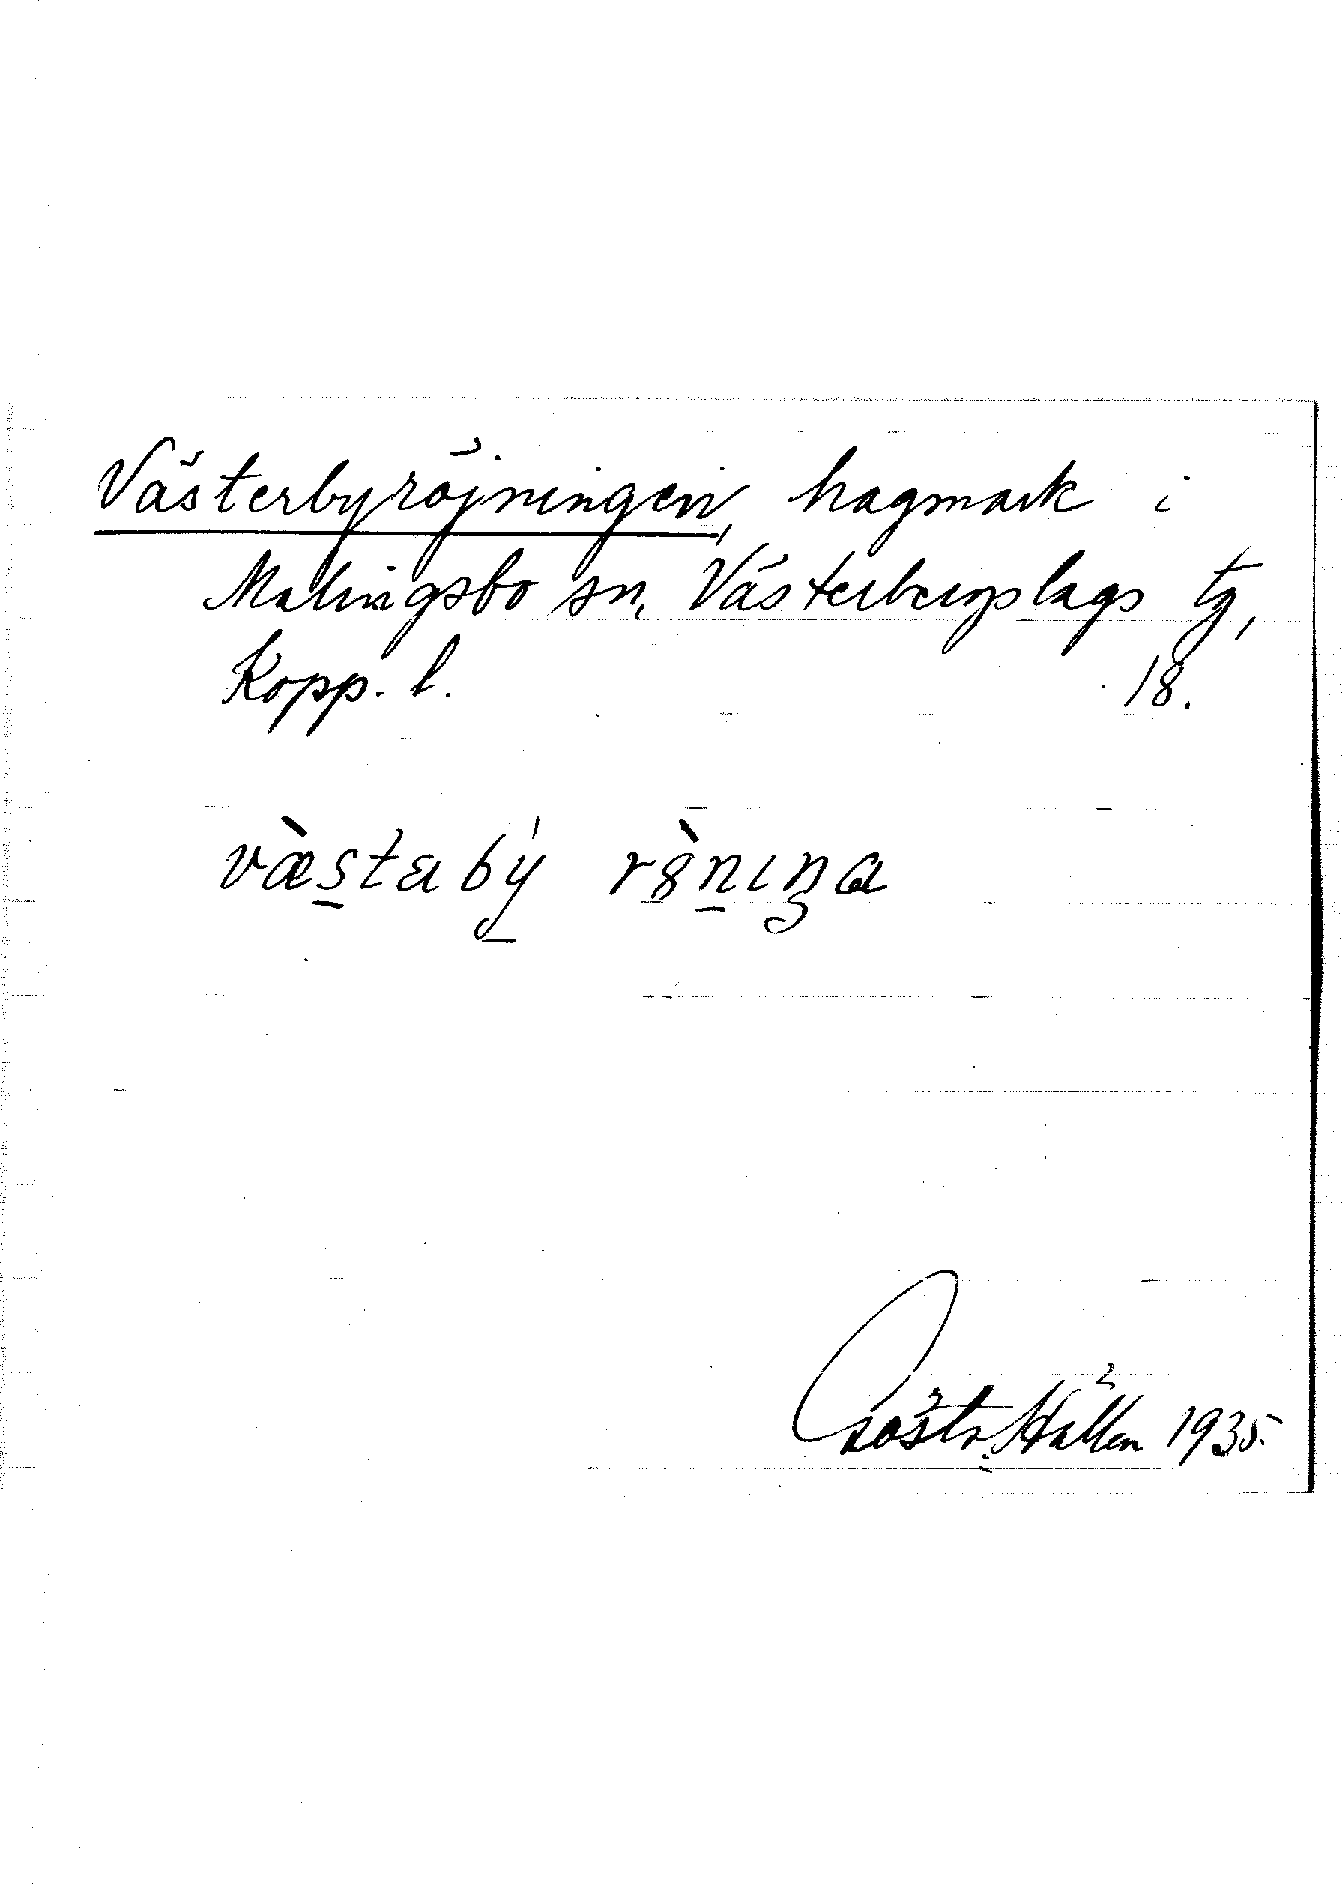 Västerbyröjningen, hagmark i
Malingsbo sn, Västerbergslags tg,
Kopp. l. 18.
væ̀s̠tabý̠ rꞝ̀n̠ıŋa
Gösta Hallén 1935.